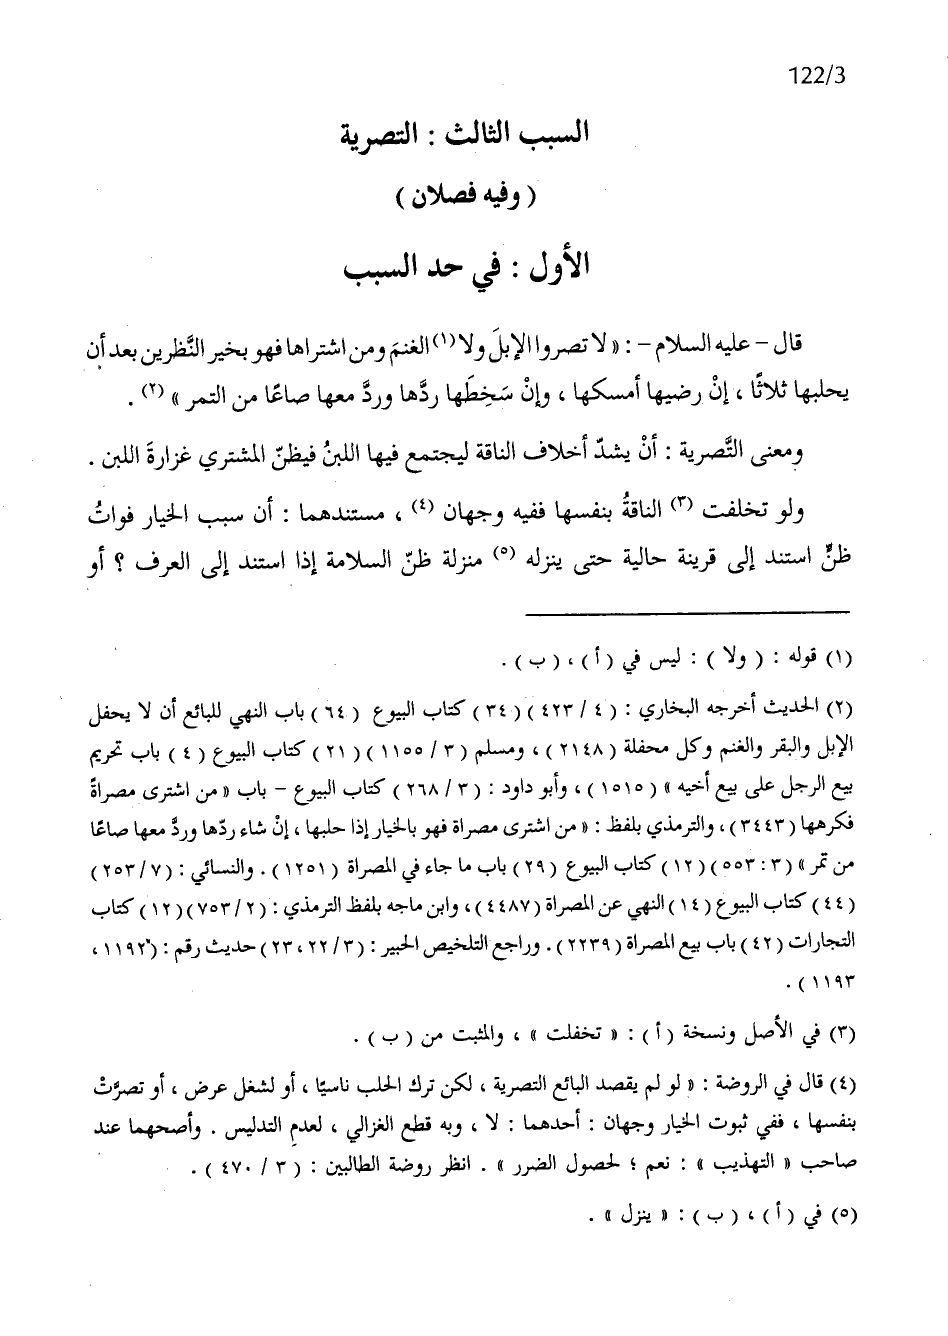 122/3
السبب الثالث : التصرية
( وفيه فصلان )
الأول : في حد السبب
قال – عليه السلام – : « لا تصروا الإبلَ ولا(١) الغنمَ ومن اشتراها فهو بخير النَّظرين بعد أن
يحلبها ثلاثًا ، إنْ رضيها أمسكها ، وإنْ سَخِطَها ردَّها وردَّ معها صاعًا من التمر » (٢) .
ومعنى التَّصرية : أنْ يشدّ أخلاف الناقة ليجتمع فيها اللبنُ فيظنّ المشتري غزارةَ اللبن .
ولو تخلفت (٣) الناقةُ بنفسها ففيه وجهان (٤) ، مستندهما : أن سبب الخيار فواتُ
ظنٍّ استند إلى قرينة حالية حتى ينزله (٥) منزلة ظنّ السلامة إذا استند إلى العرف ؟ أو
(١) قوله : ( ولا ) : ليس في ( أ ) ، ( ب ) .
(٢) الحديث أخرجه البخاري : ( ٤ / ٤٢٣ ) ( ٣٤ ) كتاب البيوع ( ٦٤ ) باب النهي للبائع أن لا يحفل
الإبل والبقر والغنم وكل محفلة ( ٢١٤٨ ) ، ومسلم ( ٣ / ١١٥٥ ) ( ٢١ ) كتاب البيوع ( ٤ ) باب تحريم
بيع الرجل على بيع أخيه » ( ١٥١٥ ) ، وأبو داود : ( ٣ / ٢٦٨ ) كتاب البيوع – باب « من اشترى مصراةً
فكرهها ( ٣٤٤٣ ) ، والترمذي بلفظ : « من اشترى مصراة فهو بالخيار إذا حلبها ، إنْ شاء ردّها وردَّ معها صاعًا
من تمر » ( ٣ : ٥٥٣ ) ( ١٢ ) كتاب البيوع ( ٢٩ ) باب ما جاء في المصراة ( ١٢٥١ ) . والنسائي : ( ٧ / ٢٥٣ )
( ٤٤ ) كتاب البيوع ( ١٤ ) النهي عن المصراة ( ٤٤٨٧ ) ، وابن ماجه بلفظ الترمذي : ( ٢ / ٧٥٣ ) ( ١٢ ) كتاب
التجارات ( ٤٢ ) باب بيع المصراة ( ٢٢٣٩ ) . وراجع التلخيص الحبير : ( ٣ / ٢٢ ، ٢٣ ) حديث رقم : ( ١١٩٢ ،
١١٩٣ ) .
(٣) في الأصل ونسخة ( أ ) : « تخفلت » ، والمثبت من ( ب ) .
(٤) قال في الروضة : « لو لم يقصد البائع التصرية ، لكن ترك الحلب ناسيًا ، أو لشغل عرض ، أو تصرَّتْ
بنفسها ، ففي ثبوت الخيار وجهان : أحدهما : لا ، وبه قطع الغزالي ، لعدم التدليس . وأصحهما عند
صاحب « التهذيب » : نعم ؛ لحصول الضرر » . انظر روضة الطالبين : ( ٣ / ٤٧٠ ) .
(٥) في ( أ ) ، ( ب ) : « ينزل » .